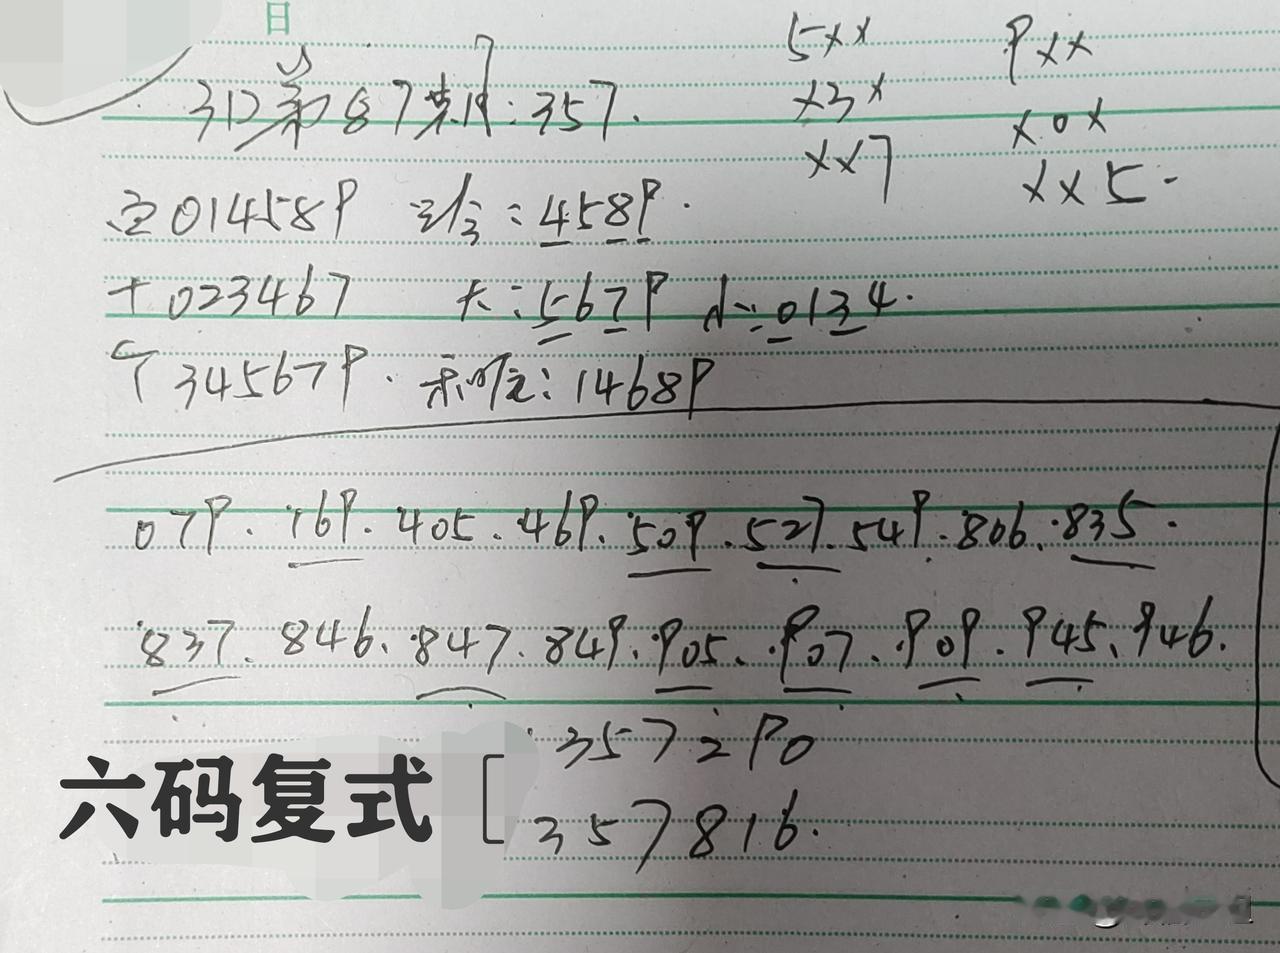 日
5XX 9XX
3D第87期:357.
X3X X0X
XX7 XX5.
百014589 :4589.
十023467 大:5679 小:0134.
个345679. 和值:14689
079.169.405.469.509.527.549.806.835.
837.846.847.849.905.907.909.945.946.
357290
六码复式
357816.